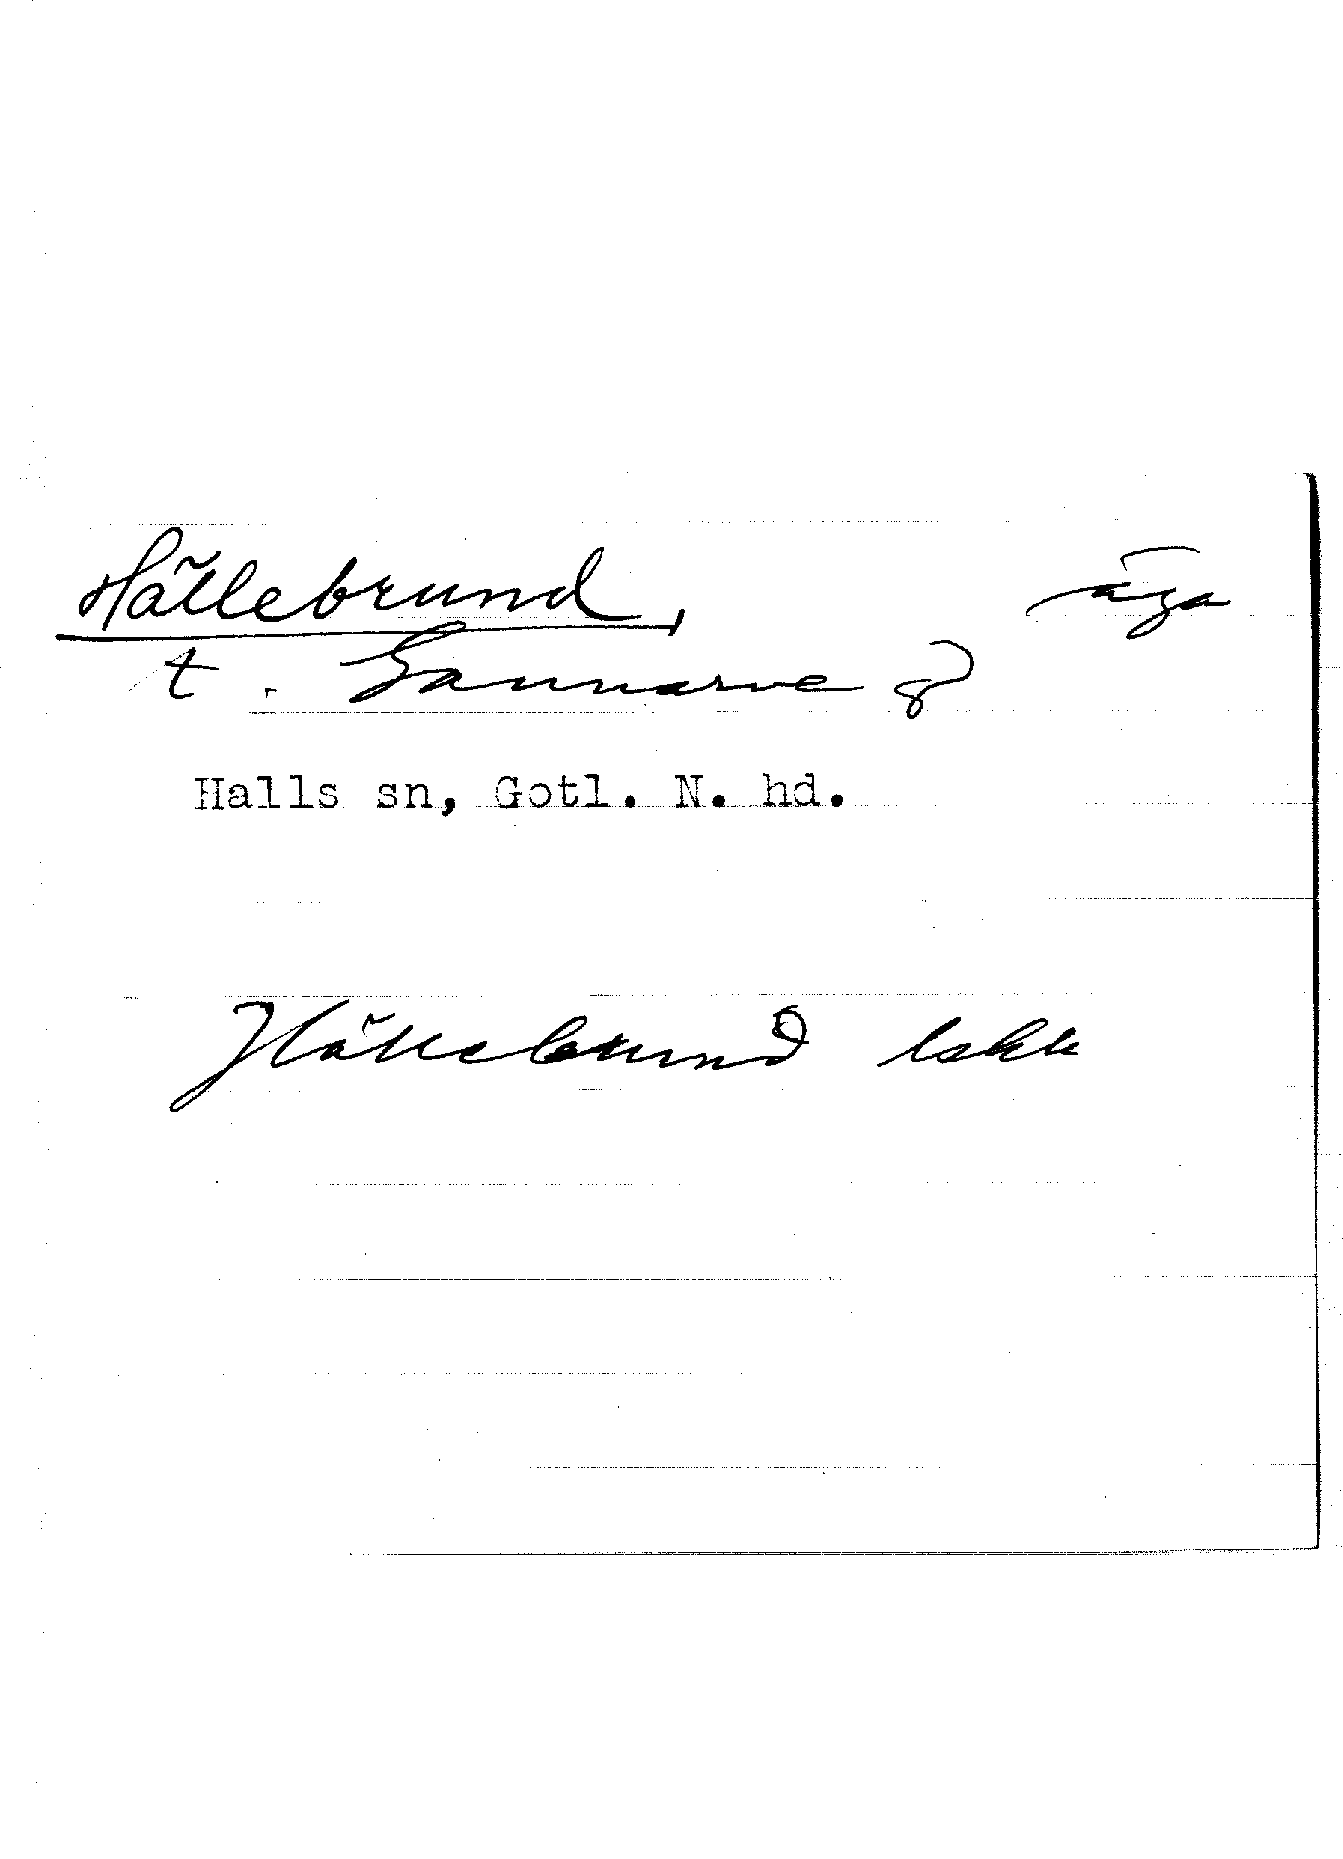 Hällebrund, äga
t. Gannarve 8
Halls sn, Gotl. N. hd.
Hällebrund Lskk